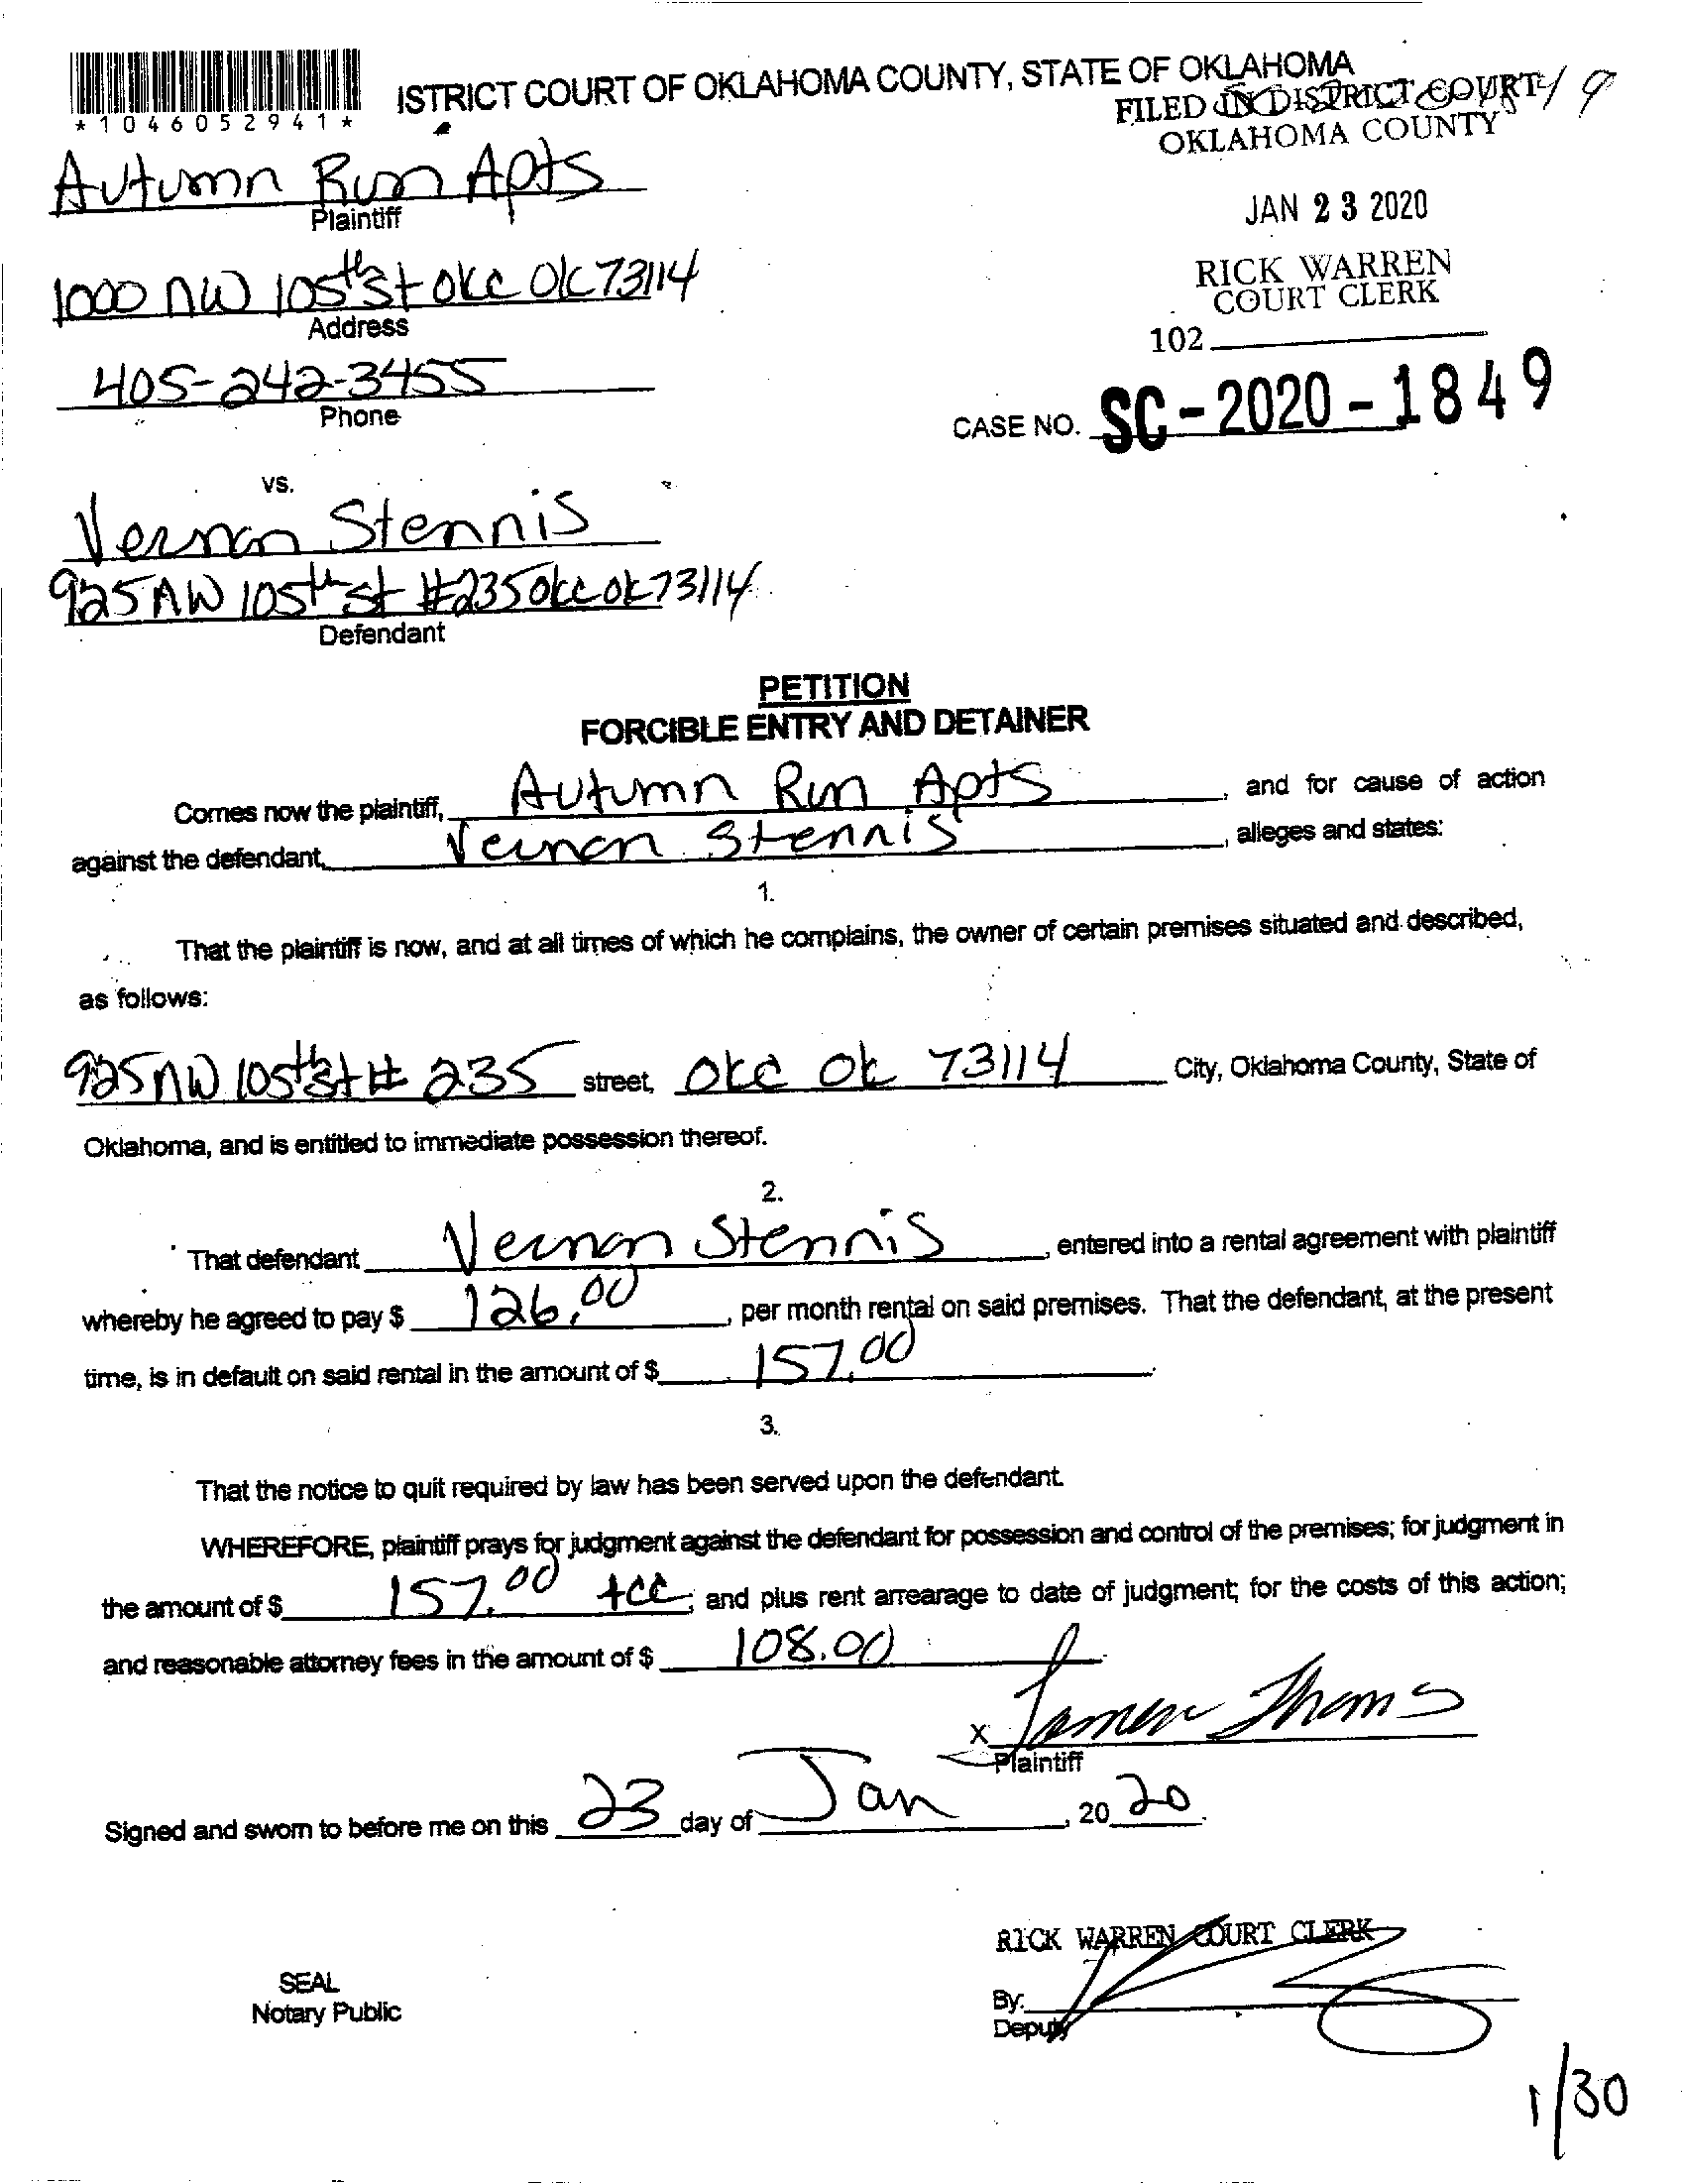 *1046052941*
ISTRICT COURT OF OKLAHOMA COUNTY, STATE OF OKLAHOMA
FILED IN DISTRICT COURT
OKLAHOMA COUNTY
Autumn Run Apts
Plaintiff
JAN 23 2020
1000 NW 105th St OKC OK 73114
Address
RICK WARREN
COURT CLERK
102
405-242-3455
Phone
CASE NO. SC-2020-1849
vs.
Vernon Stennis
925 NW 105th St #235 OKC OK 73114
Defendant
PETITION
FORCIBLE ENTRY AND DETAINER
Comes now the plaintiff, Autumn Run Apts, and for cause of action
against the defendant, Vernon Stennis, alleges and states:
1.
That the plaintiff is now, and at all times of which he complains, the owner of certain premises situated and described,
as follows:
925 NW 105th St # 235 street, OKC OK 73114 City, Oklahoma County, State of
Oklahoma, and is entitled to immediate possession thereof.
2.
That defendant Vernon Stennis, entered into a rental agreement with plaintiff
whereby he agreed to pay $ 126.00, per month rental on said premises. That the defendant, at the present
time, is in default on said rental in the amount of $ 157.00.
3.
That the notice to quit required by law has been served upon the defendant.
WHEREFORE, plaintiff prays for judgment against the defendant for possession and control of the premises; for judgment in
the amount of $ 157.00 +CC; and plus rent arrearage to date of judgment; for the costs of this action;
and reasonable attorney fees in the amount of $ 108.00
X
Plaintiff
Signed and sworn to before me on this 23 day of Jan, 2020.
RICK WARREN COURT CLERK
SEAL
Notary Public
By:
Deputy
1/30